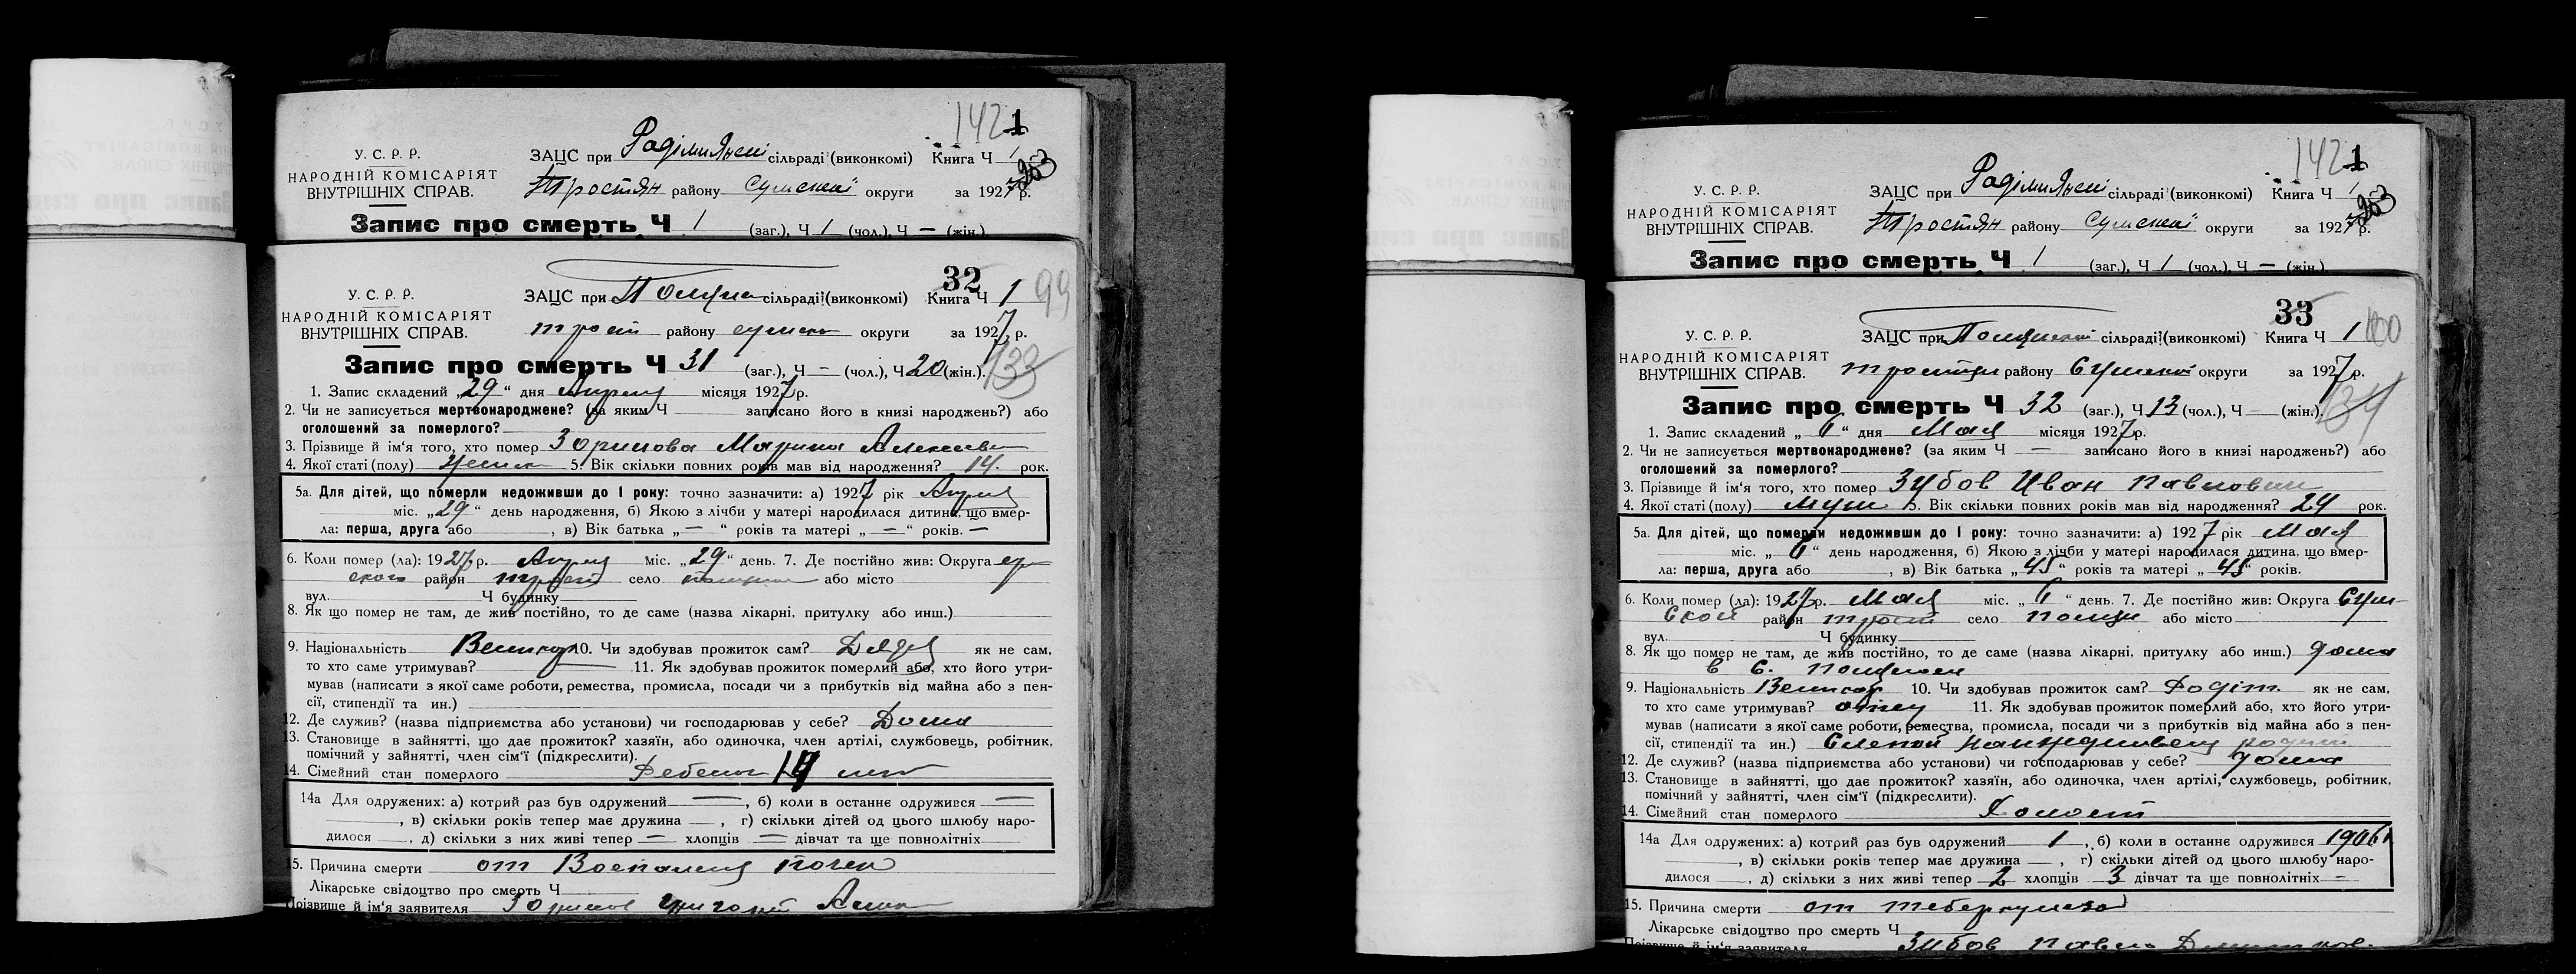 142 1
У. С. Р. Р.
НАРОДНІЙ КОМІСАРІЯТ
ВНУТРІШНІХ СПРАВ.
ЗАЦС при сільраді (виконкомі) Книга Ч 1
Тростян району Сумської округи за 1927 р.
253
Запис про смерть Ч 1 (заг.), Ч 1 (чол.), Ч — (жін.).
32
99
У. С. Р. Р.
НАРОДНІЙ КОМІСАРІЯТ
ВНУТРІШНІХ СПРАВ.
ЗАЦС при сільраді (виконкомі) Книга Ч 1
трост району сумск округи за 1927 р.
133
Запис про смерть Ч 31 (заг.), Ч — (чол.), Ч 20 (жін.).
1. Запис складений „29“ дня Апреля місяця 1927 р.
2. Чи не записується мертвонароджене? (за яким Ч записано його в книзі народжень?) або
оголошений за померлого?
3. Прізвище й ім‘я того, хто помер Марина
4. Якої статі (полу) женск 5. Вік скільки повних років мав від народження? 14 рок.
5а. Для дітей, що померли недоживши до 1 року: точно зазначити: а) 1927 рік Апреля
міс. „29“ день народження, б) Якою з лічби у матері народилася дитина, що вмер-
ла: перша, друга або , в) Вік батька „—“ років та матері „—“ років. —
6. Коли помер (ла): 1927 р. Апреля міс. „29“ день. 7. Де постійно жив: Округа
ского район трост село або місто
вул. Ч будинку
8. Як що помер не там, де жив постійно, то де саме (назва лікарні, притулку або инш.)
9. Національність Великор 10. Чи здобував прожиток сам? як не сам,
то хто саме утримував? 11. Як здобував прожиток померлий або, хто його утри-
мував (написати з якої саме роботи, ремества, промисла, посади чи з прибутків від майна або з пен-
сії, стипендії та ин.)
12. Де служив? (назва підприємства або установи) чи господарював у себе? Дома
13. Становище в зайнятті, що дає прожиток? хазяїн, або одиночка, член артілі, службовець, робітник,
помічний у зайнятті, член сім‘ї (підкреслити).
14. Сімейний стан померлого Ребенок 14 лет
14а Для одружених: а) котрий раз був одружений —, б) коли в останнє одружився —
, в) скільки років тепер має дружина —, г) скільки дітей од цього шлюбу наро-
дилося , д) скільки з них живі тепер — хлопців — дівчат та ще повнолітніх
15. Причина смерти от Воспаления почек
Лікарське свідоцтво про смерть Ч
Прізвище й ім‘я заявителя Григорий
142 1
У. С. Р. Р.
НАРОДНІЙ КОМІСАРІЯТ
ВНУТРІШНІХ СПРАВ.
ЗАЦС при сільраді (виконкомі) Книга Ч 1
Тростян району Сумської округи за 1927 р.
253
Запис про смерть Ч 1 (заг.), Ч 1 (чол.), Ч — (жін.).
33
100
У. С. Р. Р.
НАРОДНІЙ КОМІСАРІЯТ
ВНУТРІШНІХ СПРАВ.
ЗАЦС при сільраді (виконкомі) Книга Ч 1
району Сумской округи за 1927 р.
134
Запис про смерть Ч 32 (заг.), Ч 13 (чол.), Ч — (жін.).
1. Запис складений „6“ дня Мая місяця 1927 р.
2. Чи не записується мертвонароджене? (за яким Ч — записано його в книзі народжень?) або
оголошений за померлого?
3. Прізвище й ім‘я того, хто помер Зубов Иван Павлович
4. Якої статі (полу) муж 5. Вік скільки повних років мав від народження? 24 рок.
5а. Для дітей, що померли недоживши до 1 року: точно зазначити: а) 1927 рік Мая
міс. „6“ день народження, б) Якою з лічби у матері народилася дитина, що вмер-
ла: перша, друга або , в) Вік батька „45“ років та матері „45“ років.
6. Коли помер (ла): 1927 р. Мая міс. „6“ день. 7. Де постійно жив: Округа Сум-
ской район трост село або місто
вул. Ч будинку
8. Як що помер не там, де жив постійно, то де саме (назва лікарні, притулку або инш.) дома
в с.
9. Національність Великор 10. Чи здобував прожиток сам? як не сам,
то хто саме утримував? отец 11. Як здобував прожиток померлий або, хто його утри-
мував (написати з якої саме роботи, ремества, промисла, посади чи з прибутків від майна або з пен-
сії, стипендії та ин.)
12. Де служив? (назва підприємства або установи) чи господарював у себе? дома
13. Становище в зайнятті, що дає прожиток? хазяїн, або одиночка, член артілі, службовець, робітник,
помічний у зайнятті, член сім‘ї (підкреслити).
14. Сімейний стан померлого Холост
14а Для одружених: а) котрий раз був одружений 1, б) коли в останнє одружився 1906
, в) скільки років тепер має дружина —, г) скільки дітей од цього шлюбу наро-
дилося , д) скільки з них живі тепер 2 хлопців 3 дівчат та ще повнолітніх —
15. Причина смерти от теберкулеза
Лікарське свідоцтво про смерть Ч
Прізвище й ім‘я заявителя Зубов Павел